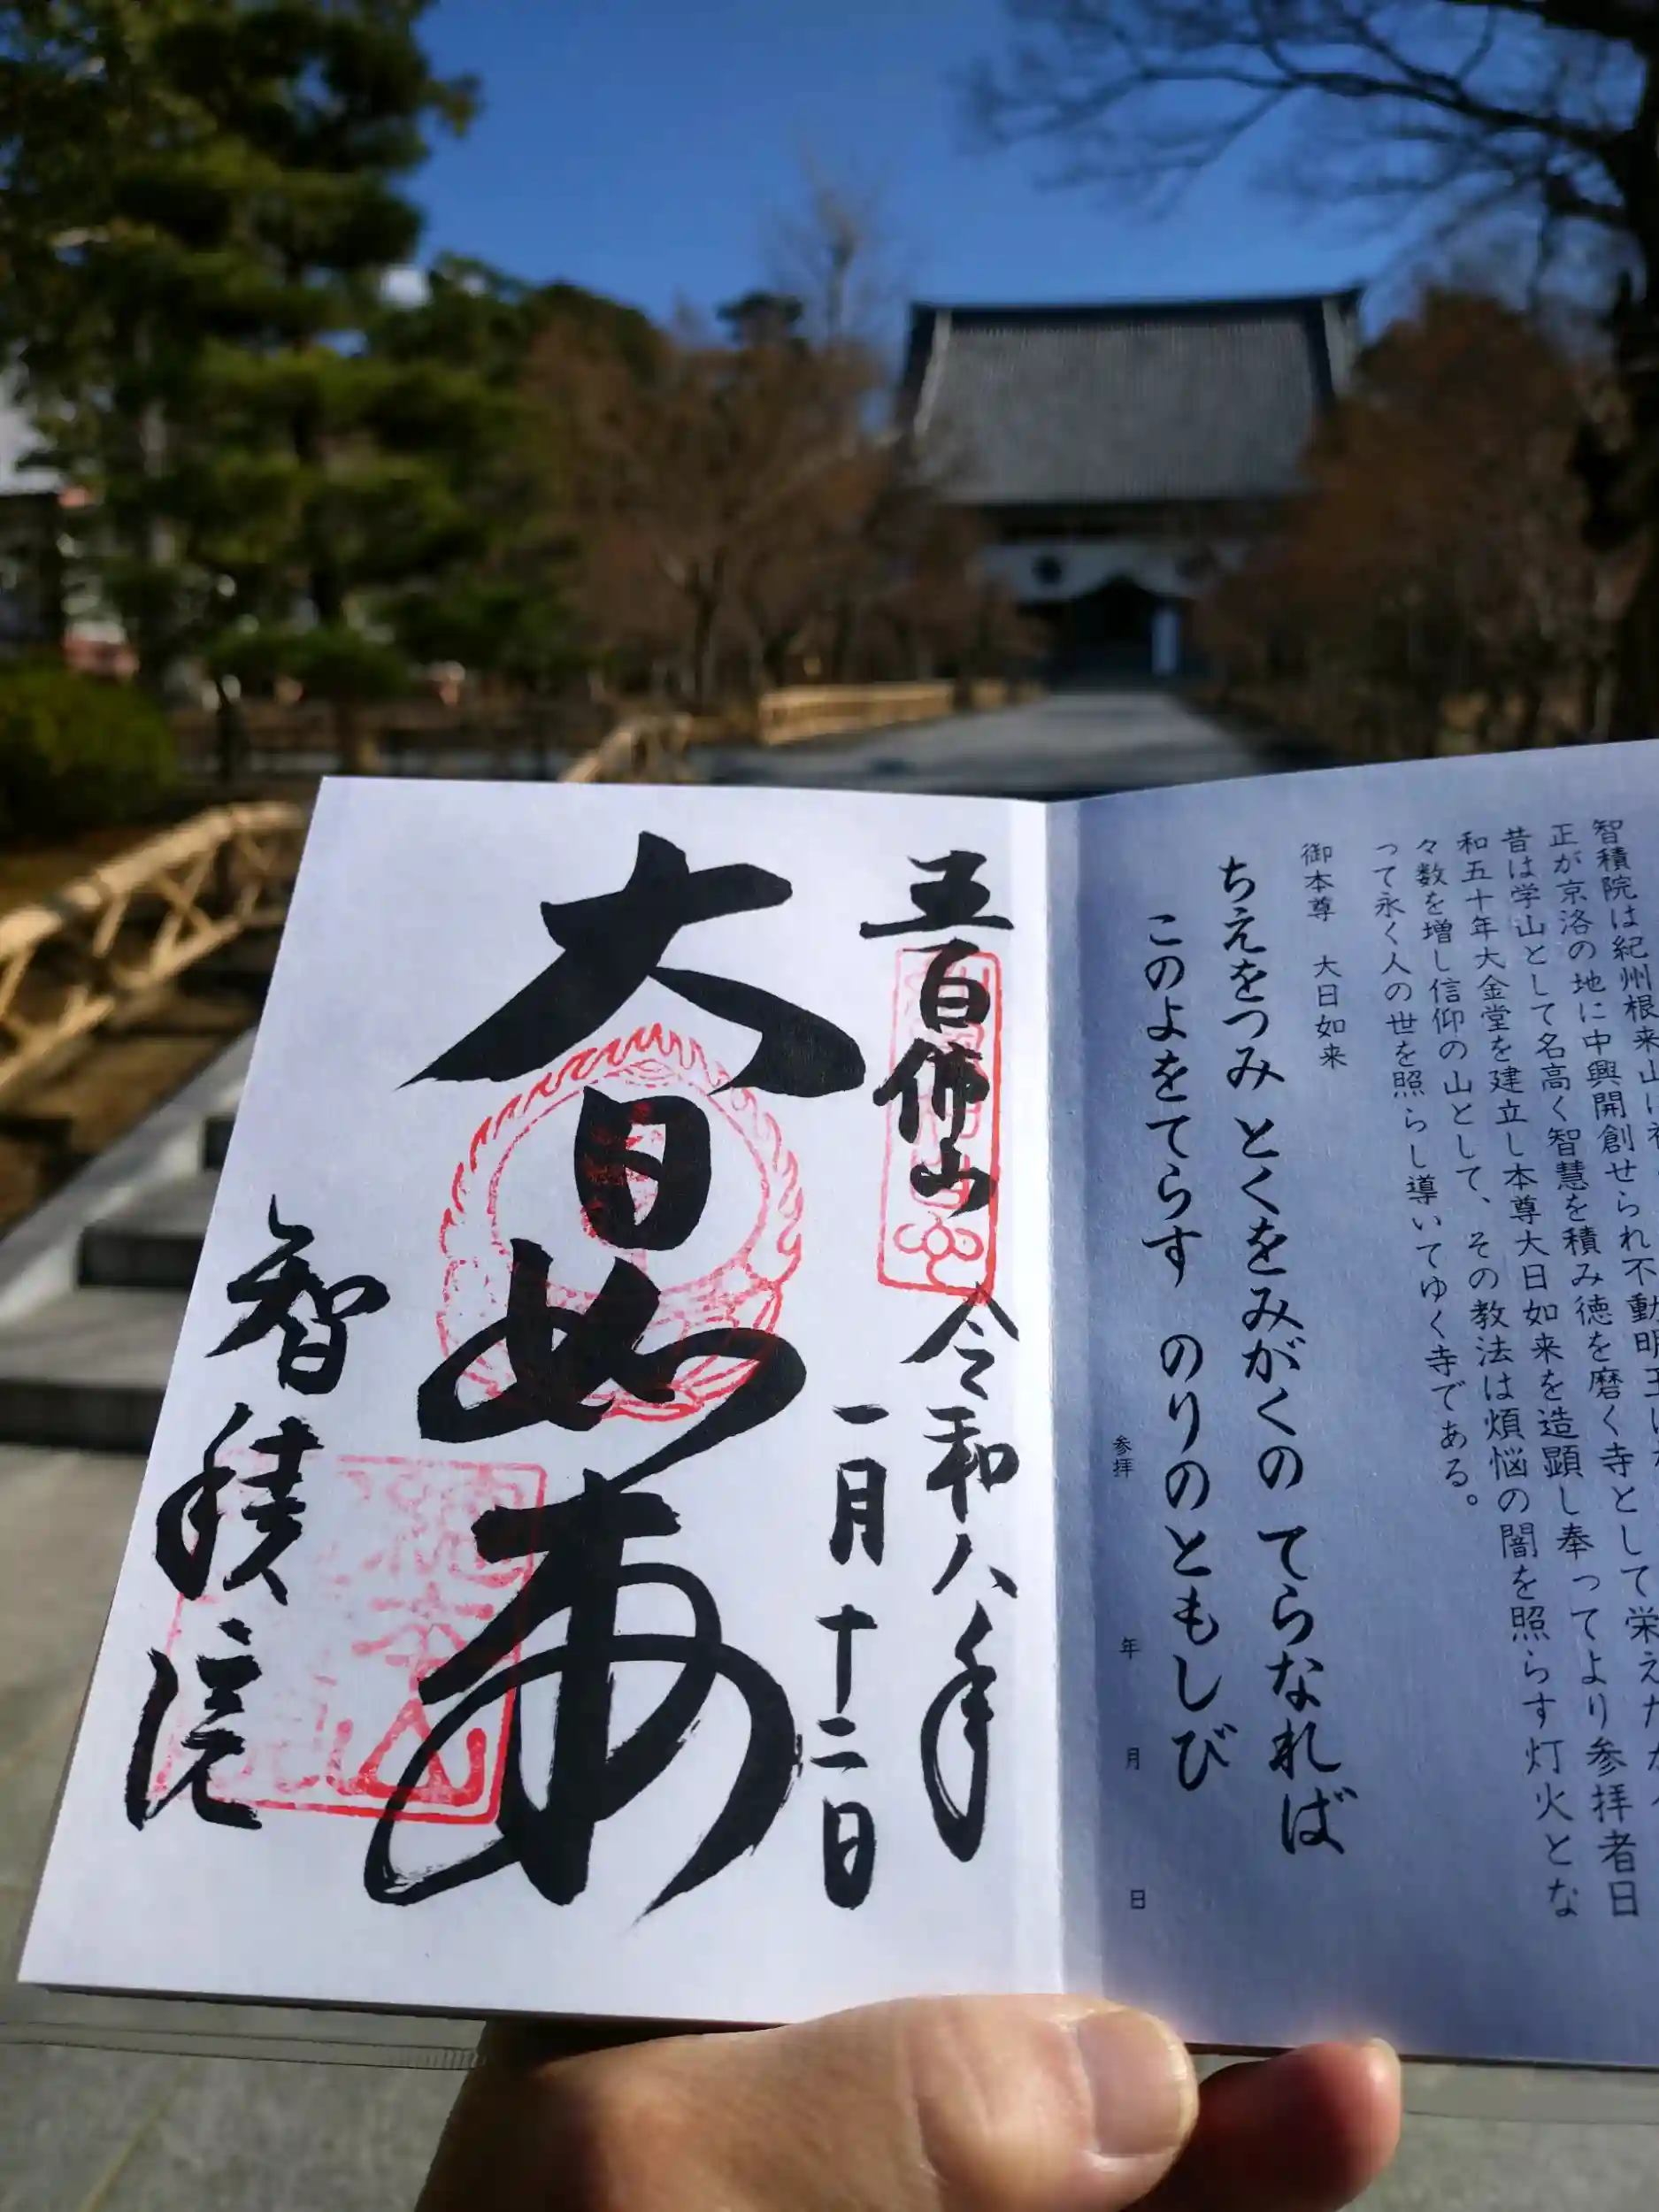 智積院は紀州根来山に
正が京洛の地に中興開創せられ不動明王
昔は学山として名高く智慧を積み徳を磨く寺として栄えた
和五十年大金堂を建立し本尊大日如来を造顕し奉ってより参拝者日
々数を増し信仰の山として、その教法は煩悩の闇を照らす灯火とな
って永く人の世を照らし導いてゆく寺である。
御本尊 大日如来
ちえをつみ とくをみがくの てらなれば
このよをてらす のりのともしび
参拝 年 月 日
五百佛山
令和八年
一月十二日
大日如来
智積院